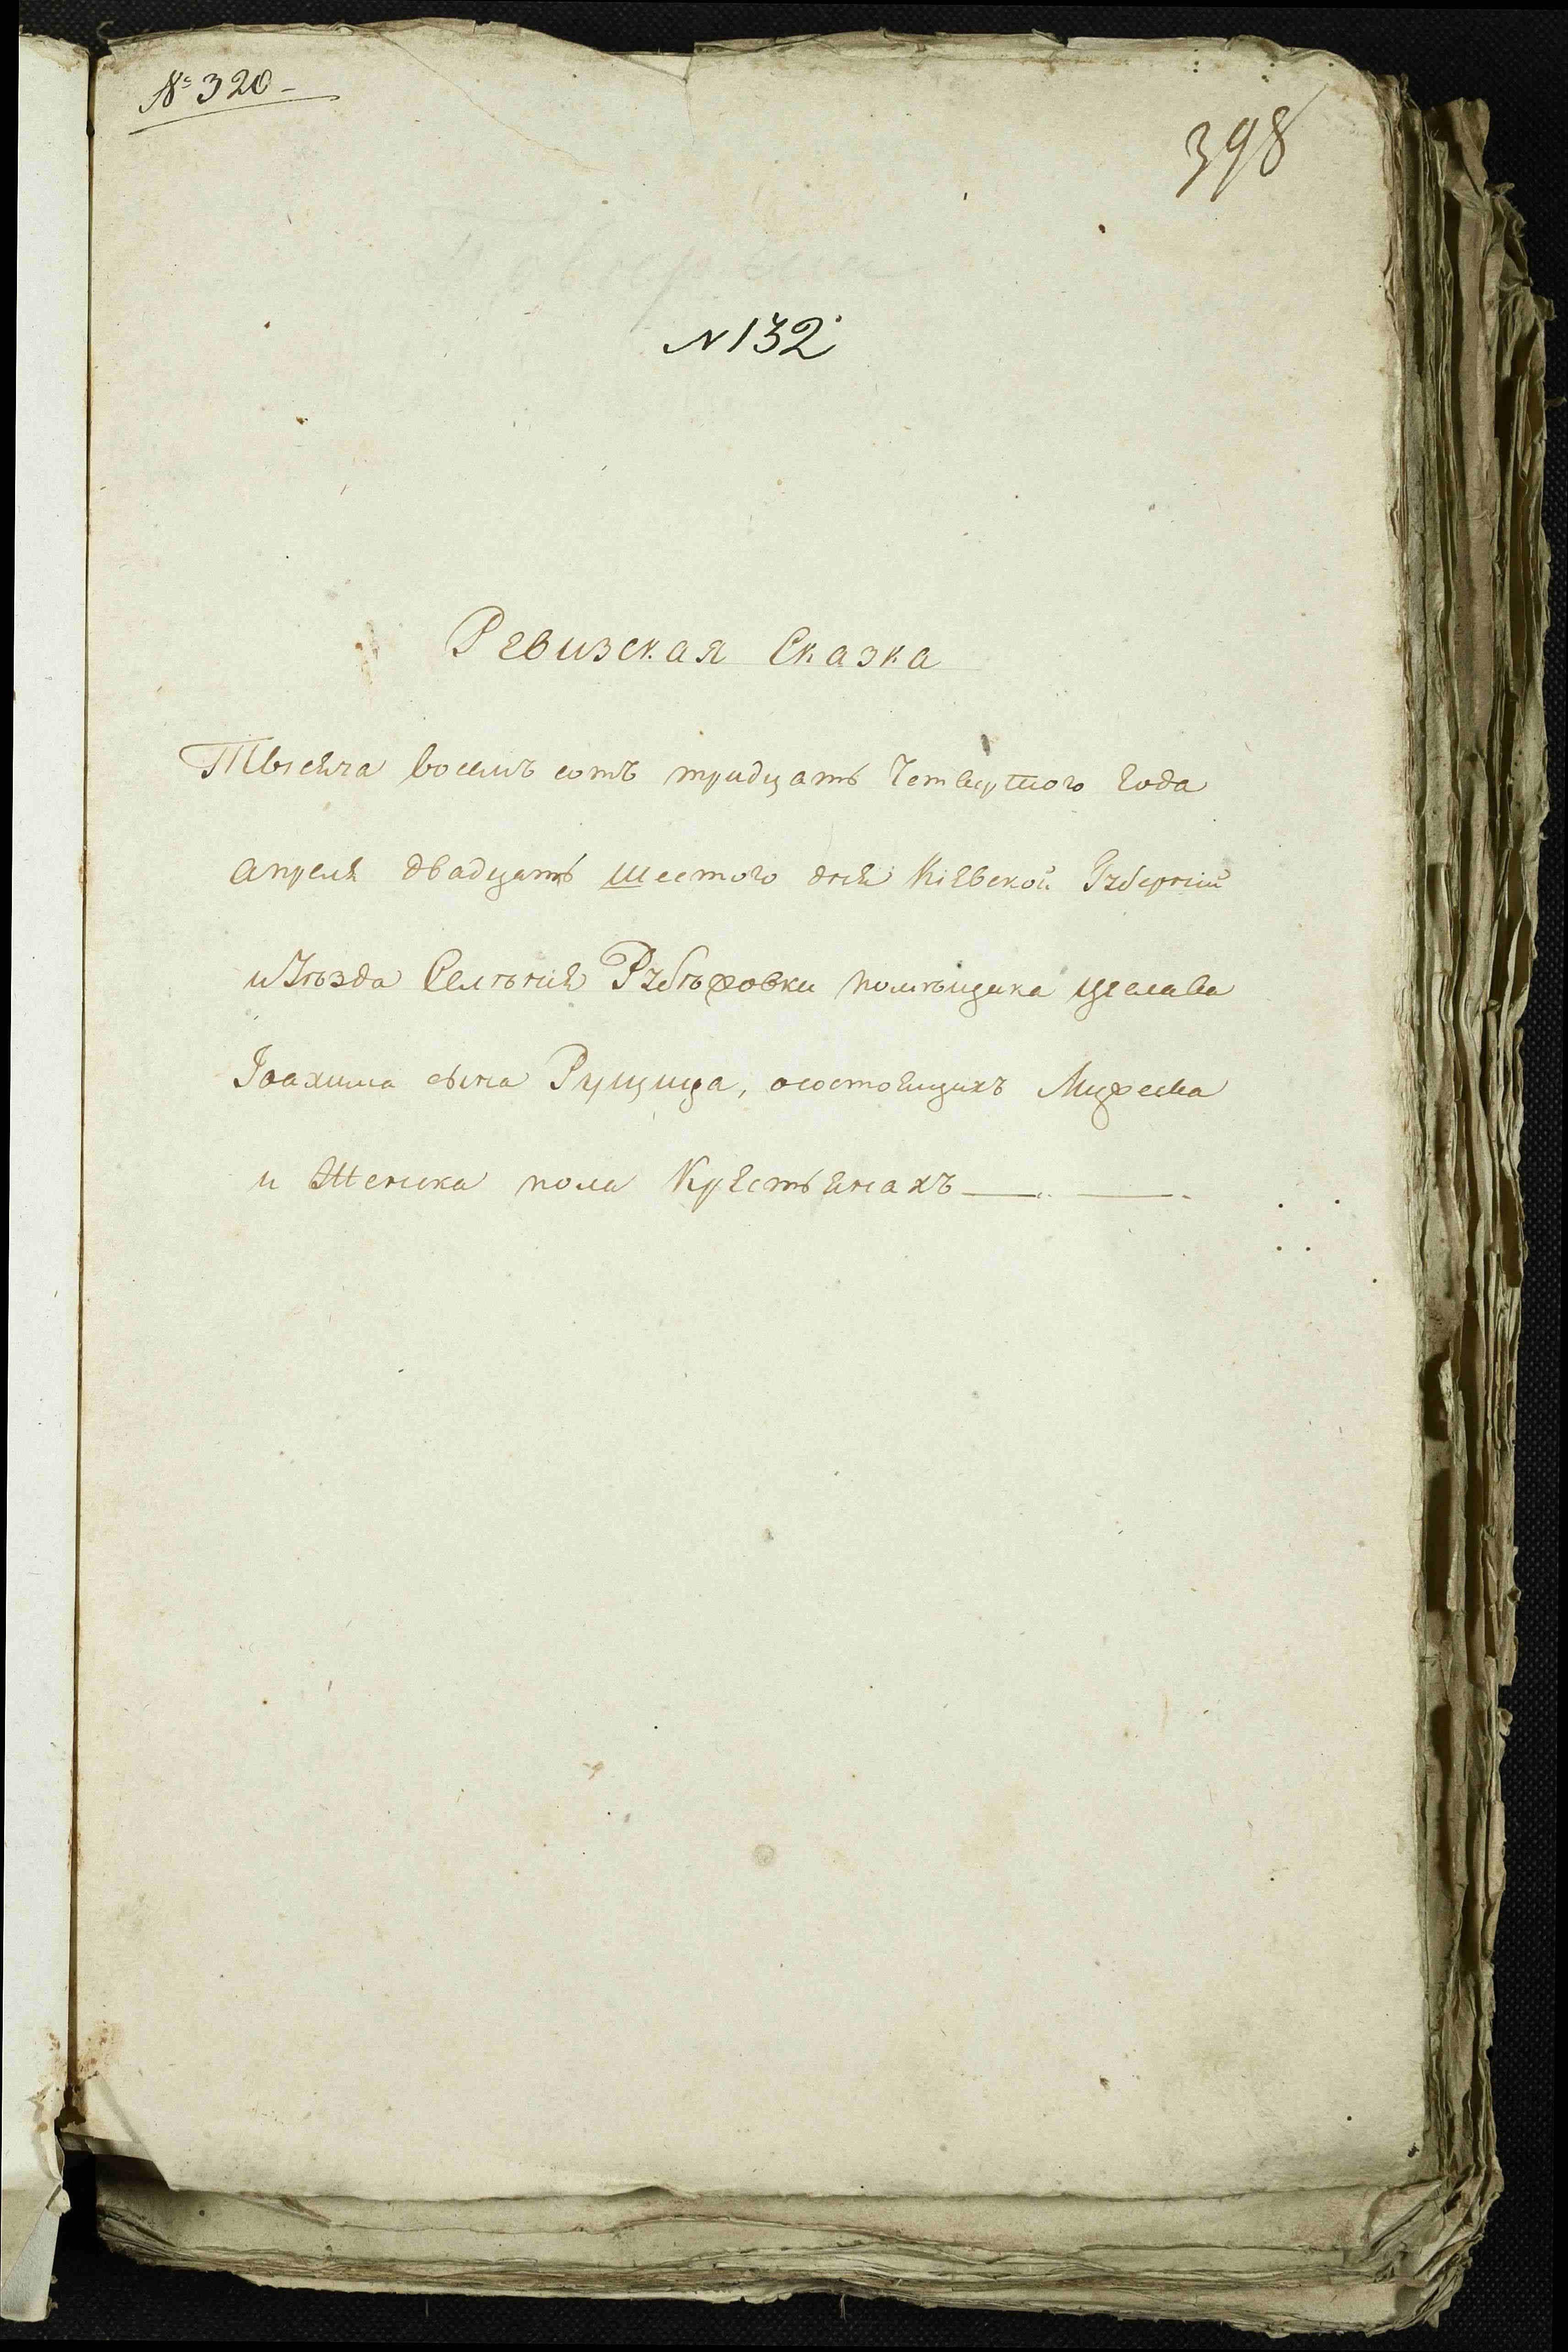 № 320 -
398
N 132
Ревизская Сказка
Тысяча восемъ сотъ тридцать Четвертого года
апреля двадцать шестого дня Кіевской Губерніи
и Уѣзда Селѣнія помѣщика
Іоахима сына Рущица, осостоящихъ Мужеска
и Женска пола Крестьянахъ